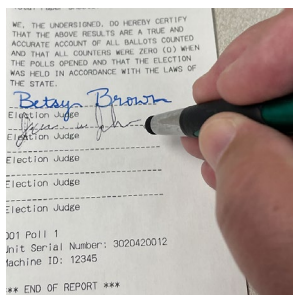 WE, THE UNDERSIGNED, DO HEREBY CERTIFY
THAT THE ABOVE RESULTS ARE A TRUE AND
ACCURATE ACCOUNT OF ALL BALLOTS COUNTED
AND THAT ALL COUNTERS WERE ZERO (0) WHEN
THE POLLS OPENED AND THAT THE ELECTION
WAS HELD IN ACCORDANCE WITH THE LAWS OF
THE STATE.
Betsy Brown
Election Judge
Election Judge
Election Judge
Election Judge
Election Judge
001 Poll 1
Unit Serial Number: 3020420012
Machine ID: 12345
** END OF REPORT ***